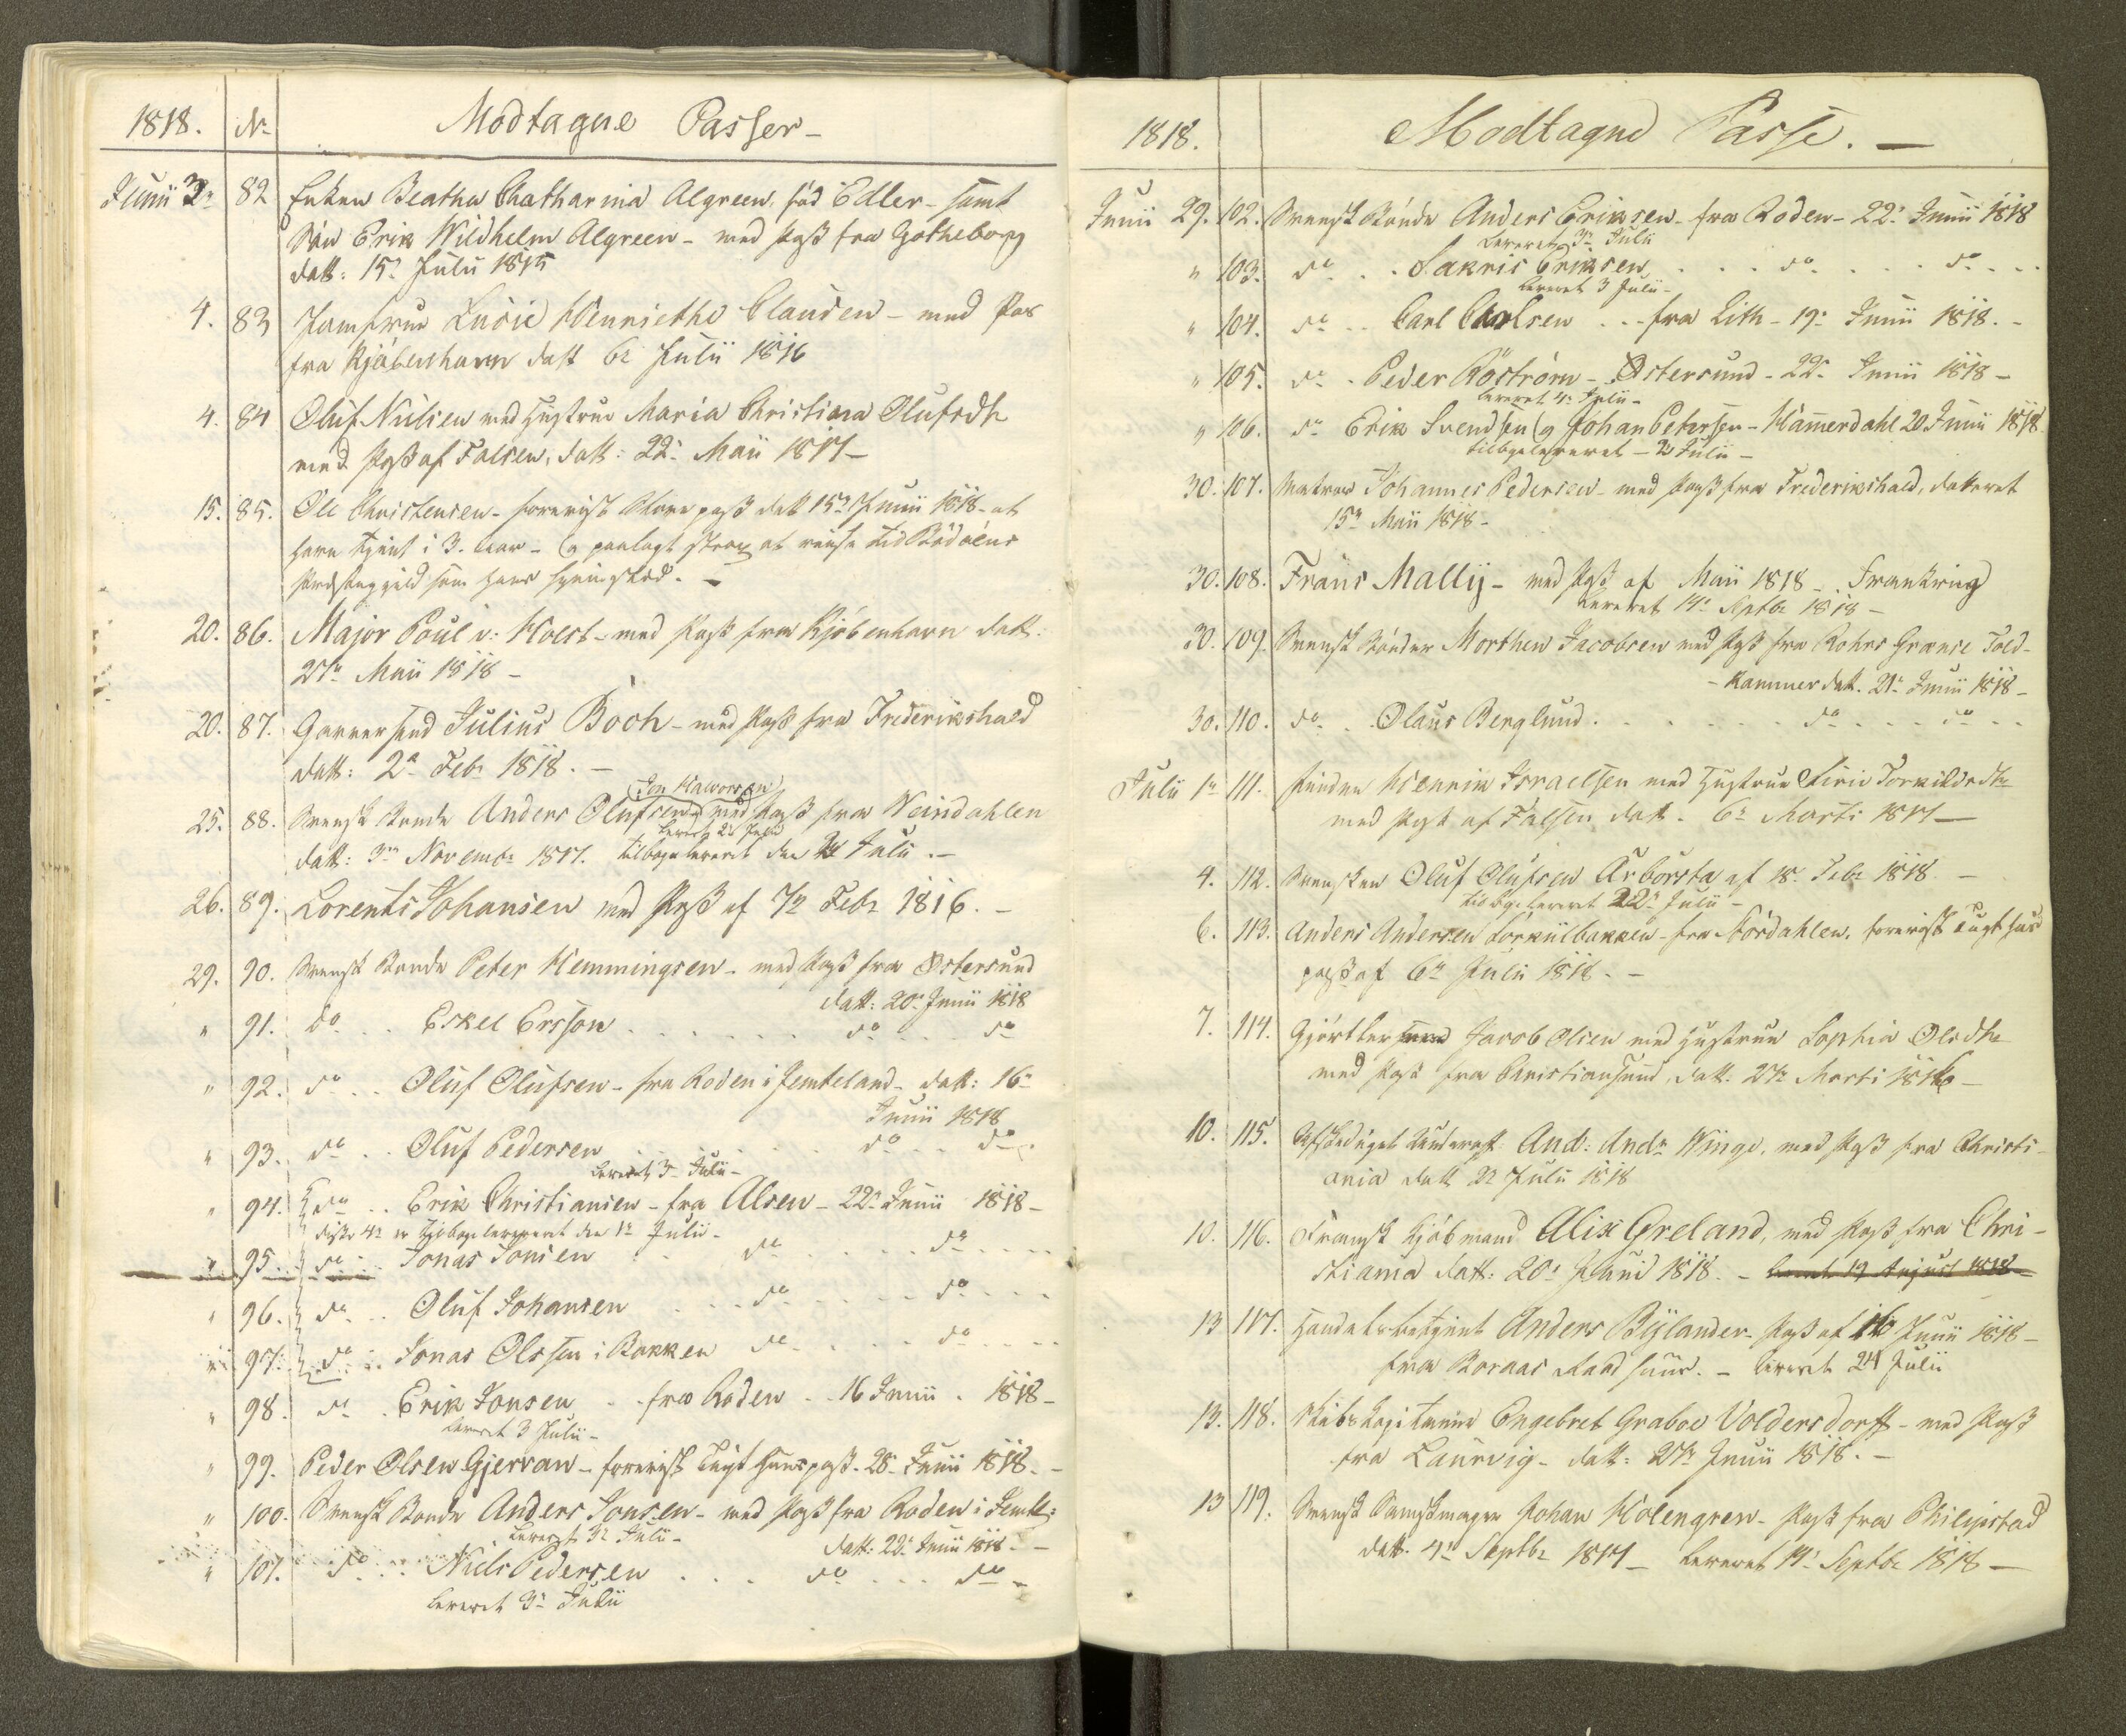 1818. No Modtagne Passer-
Junii 3r 82 Enken Beatha Chatharina Algreen, fød Edler- samt
Søn Erik Wildhelm Algreen- med Pass fra Gotheborg
datt: 15r Julii 1815
4. 83 Jomfrue Lucie Henriethe Clausen- med Pas
fra Kjøbenhavn datt 6r Julii 1816
4. 84 Oluf Nielsen med Hustrue Maria Christiana Olufsdtr
med Pass af Falsen, datt: 22r Maii 1817-
15. 85. Ole Christensen- forevist Skove pass datt 15r Junii 1818- at
have tjent i 3. Aar- og paalagt strax at reise til
Præstegjeld som hans
20. 86. Major Poul v: Holst- med Pass fra Kjøbenhavn datt.
Maii 1818-
20. 87. Garversvend Julius Böch- med Pass fra Frederikshald
datt: 2n Febr 1818.-
Jon Halvorsen
25. 88. Svensk Bonde Anders Olufsen med Pass fra Weindahlen
Leveret 2r Julii
datt: 3r Novembr 1817. tilbageleveret den 2 Julii.-
26. 89. Lorents Johansen med Pass af 7r Febr 1816.-
29. 90. Svensk Bonde Peter Hemmingsen- med Pass fra Østersund
datt: 20r Junii 1818
" 91. do .. Eskel Ersson ...... do ... do
" 92. do ... Oluf Olufsen- fra Roden i Jemteland- datt: 16r
Junii 1818
" 93. do .. Oluf Pedersen .... do .. do
Leveret 3r Julii-
" 94. do .. Erik Christiansen- fra Alsen- 22r Junii 1818-
disse 4r er tilbageleveret den 1r Julii-
" 95 do .. Jonas Jonsen . do ..... do ....
" 96. do .. Oluf Johansen ... do ..... do ...
" 97. do .. Jonas Olssen i Bakken do .... do ...
" 98. do . Erik Jonsen .. fra Roden .. 16 Junii . 1818-
Leveret 3 Julii-
" 99. Peder Olsen Gjervan- forevist Tugthuuspass- 28r Junii 1818.-
" 100. Svensk Bonde Anders Jonsen- med Pass fra Roden i Jemtl:
Leveret 3r Julii- datt: 22r Junii 1818.-
" 101. do .. Niels Pedersen ... do ... do-
Leveret 3r Julii
1818. Modtagne Passe.-
Junii 29. 102. Svensk Bonde Anders Eriksen- fra Roden- 22r Junii 1818
Leveret 3r Julii
" 103. do .. Sakris Eriksen .... do .... do ...
Leveret 3 Julii-
" 104. do .. Carl Carlsen ... fra Lith- 19r Junii 1818.-
" 105. do . Peder Röström- Østersund- 22r Junii 1818-
Leveret 4r Julii-
" 106. do Erik Svendsen og Johan Petersen- Hamerdahl 20 Junii 1818
tilbageleveret- 2 Julii-
30. 107. Matros Johannes Pedersen- med Pass fra Frederikshald, datteret
15r Maii 1818-
30. 108. Frans Mallij- med Pass af Maii 1818- Frankrig
Leveret 14r Septbr 1818-
30. 109. Svensk Bonder Morthen Jacobsen med Pass fra Rohns Grænse Told-
-kammer datt. 21r Junii 1818-
30. 110. do . Olaus Berglund ...... do ... do ..
Julii 1r 111. Henrik Israelsen med Hustrue Siri Torkildsdtr
med Pass af Falsen, datt- 6r Marti 1817-
4. 112. Svensken Oluf Olufsen Arborsta af 18. Febr 1818-
tilbageleveret 22r Julii-
6. 113. Anders Andersen Lorkiilbakken- fra Stördahlen, forevist Tugthuus
pass af 6r Julii 1818.-
7. 114. Gjørtler Jacob Olsen med Hustrue Sophia Olsdtr
med Pass fra Christiansund, datt. 27r Marti 1816-
10. 115. Afskediget Underoff. And: Andr Winge, med Pass fra Christi-
ania datt 2r Julii 1818
10. 116. Fransk Kjøbmand Alix Greland, med Pass fra Chri-
stiania datt: 20r Junii 1818.- Leveret 19 August 1818-
13 117. Handelsbetjent Anders Bijlander- Pass af 16 Junii 1818-
fra Boraas Raadhuus.- Leveret 24 Julii
13. 118. Skibs Kapitaine Engebret Graboe Voldersdorff- med Pass
fra Laurvig- datt: 27r Junii 1818.-
13 119. Svensk Johan Holengren- Pass fra Philipstad
datt. 4r Septbr 1817- Leveret 14r Septbr 1818-